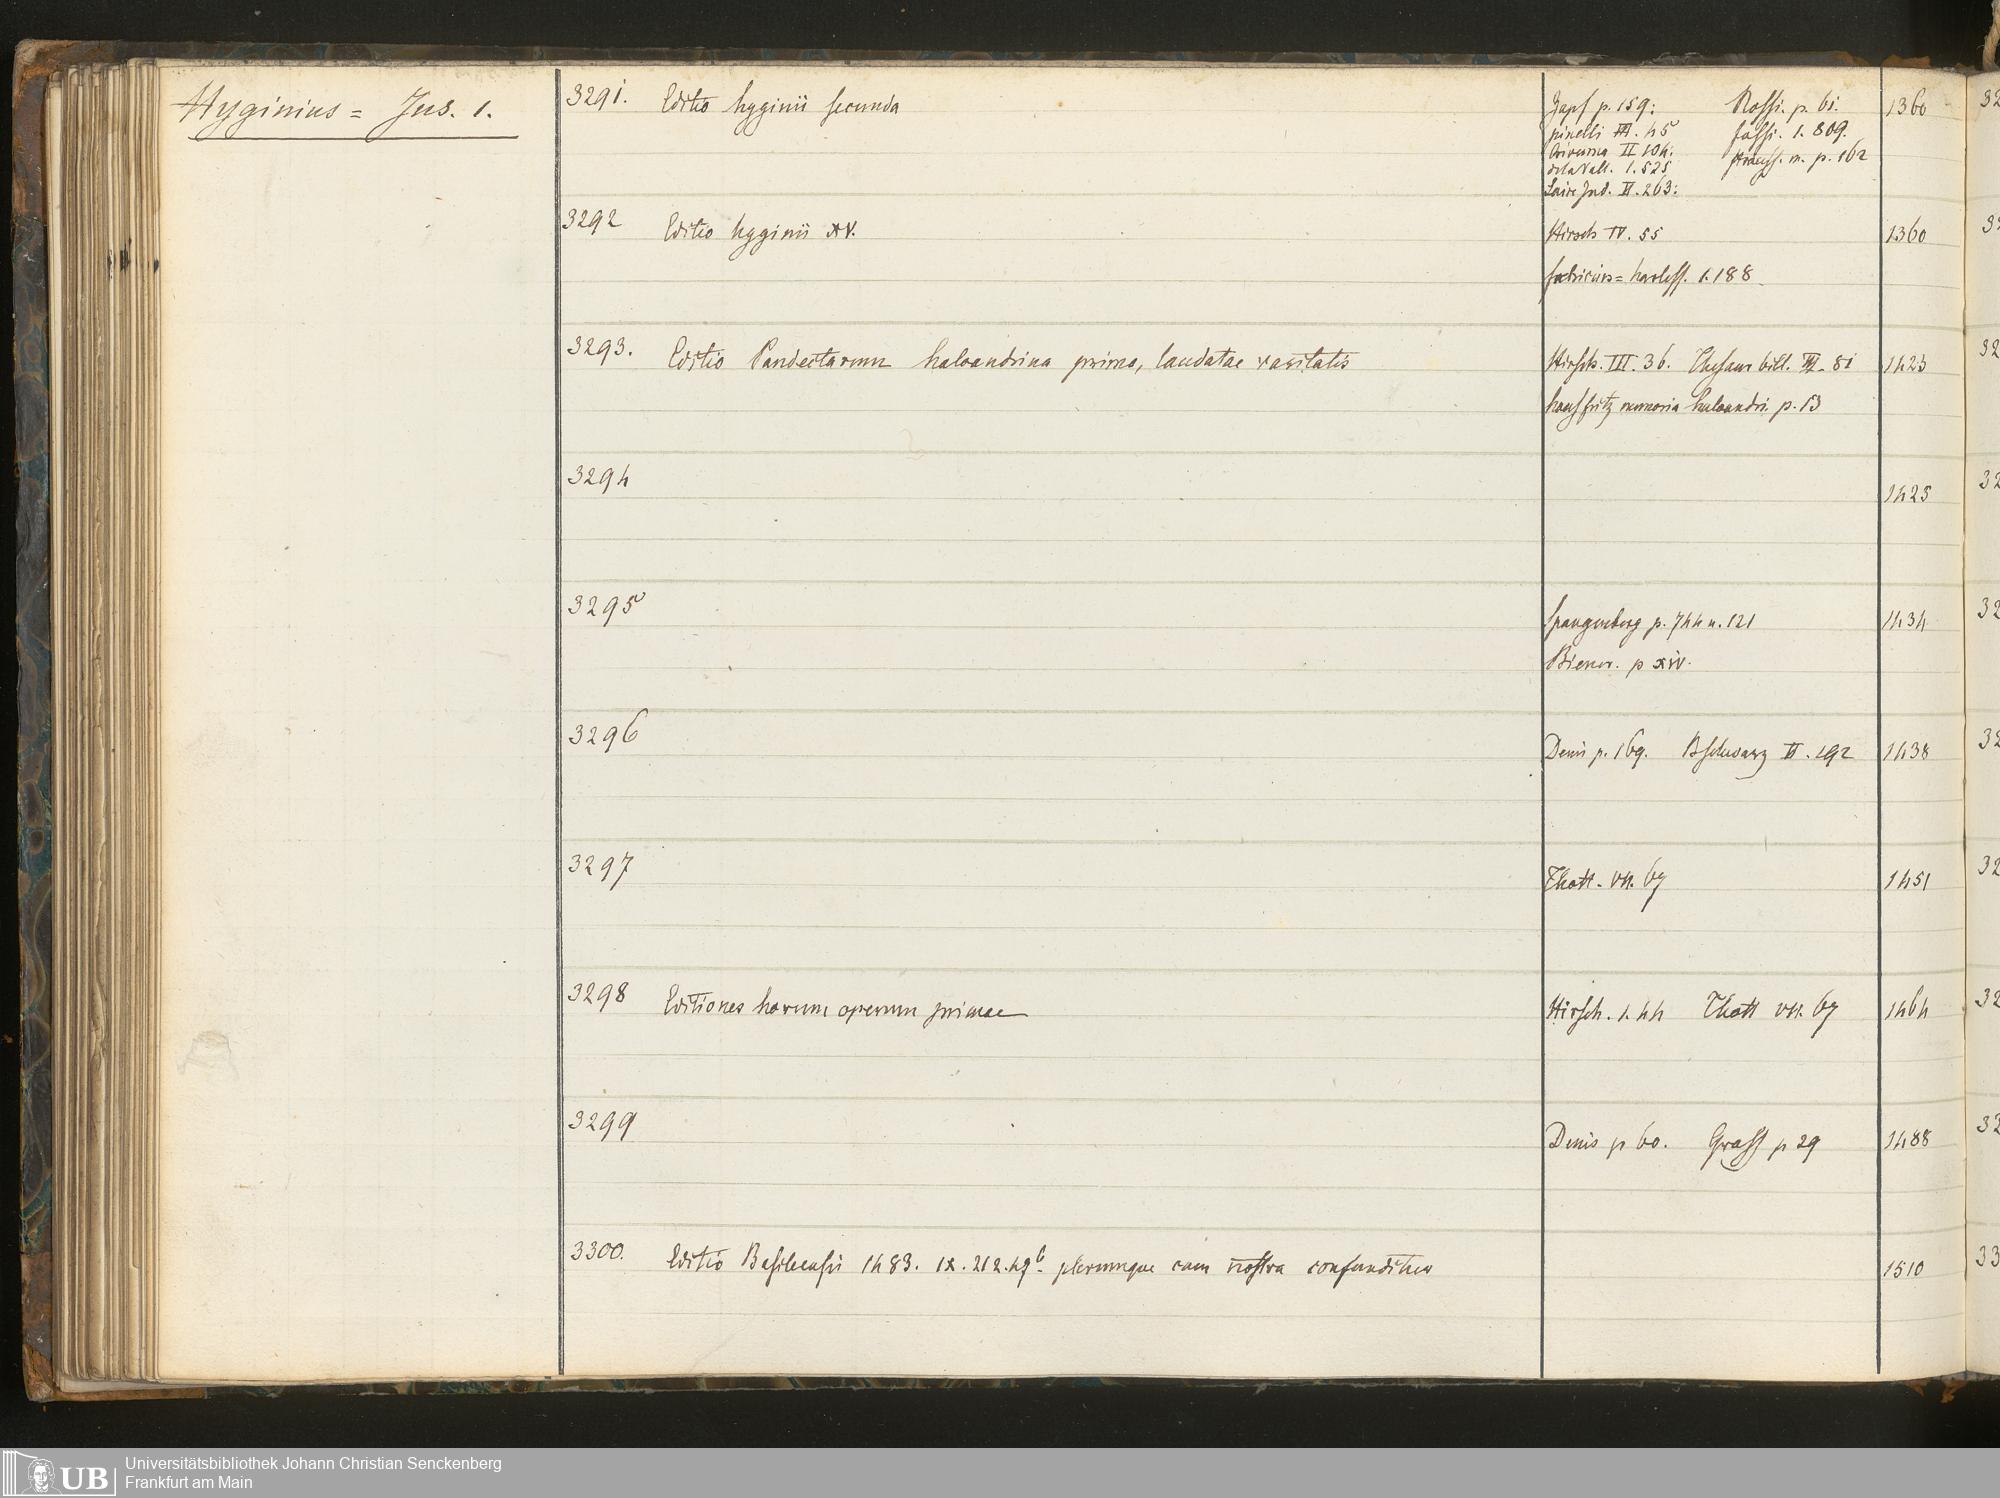 Hyginius = Jus. 1.
3291. Editio hyginii secunda
Zapf p. 159: Rossi. p. 61. 1360
pinelli III. 45 fossi. 1. 809.
Crivenna II 104: Strauss. m. p. 162
de la Vall. 1. 525
Laire Ind. II. 263:
3292 Editio hyginii XV. Hirsch IV. 55 1360
fabricius = harless. 1. 188
3293. Editio Pandectarum haloandrina prima, laudatae raritatis Hirsch. III. 36. Thesaur bibl. III. 81 1423
hausfritz memoria haloandri. p. 13
3294 1425
3295 Spangenberg p. 744 n. 121 1434
Biener. p xiv.
3296 Denis p. 169. B Schwarz II. 192 1438
3297 Thott. VII. 67 1451
3298 Editiones harum operum primae Hirsch. 1. 44 Thott VII. 67 1464
3299 Denis p 60. Grass p 29 1488
3300. Editio Basileensis 1483. IX. 212. 49b. plerumque cum nostra confunditur 1510
32
32
32
32
32
32
32
32
33
UB Universitätsbibliothek Johann Christian Senckenberg
Frankfurt am Main